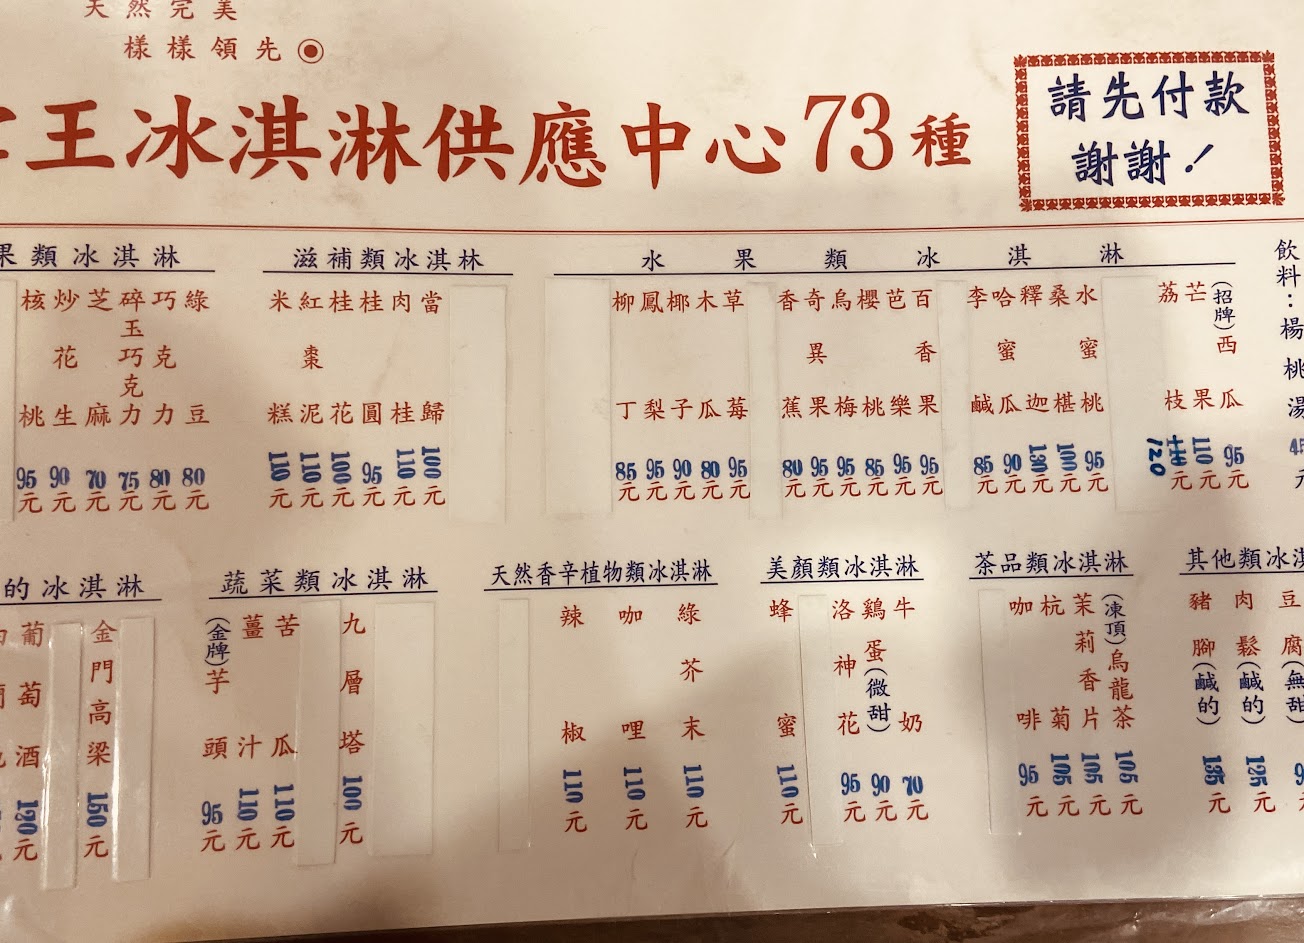 天然完美
樣樣領先
王冰淇淋供應中心73種
請先付款
謝謝！
果類冰淇淋
綠豆 80元
巧克力 80元
碎玉巧克力 75元
芝麻 70元
炒花生 90元
核桃 95元
滋補類冰淇林
當歸 100元
肉桂 110元
桂圓 95元
桂花 100元
紅棗泥 110元
米糕 110元
水果類冰淇淋
(招牌)西瓜 95元
芒果 110元
荔枝 120元
水蜜桃 95元
桑椹 100元
釋迦 130元
哈蜜瓜 90元
李鹹 85元
百香果 95元
芭樂 95元
櫻桃 85元
烏梅 95元
奇異果 95元
香蕉 80元
草莓 95元
木瓜 80元
椰子 90元
鳳梨 95元
柳丁 85元
飲料：楊桃湯 45元
的冰淇淋
金門高梁 150元
葡萄酒 120元
蔬菜類冰淇淋
九層塔 100元
苦瓜 110元
薑汁 110元
(金牌)芋頭 95元
天然香辛植物類冰淇淋
綠芥末 110元
咖哩 110元
辣椒 110元
美顏類冰淇淋
牛奶 70元
鷄蛋(微甜) 90元
洛神花 95元
蜂蜜 110元
茶品類冰淇淋
(凍頂)烏龍茶 105元
茉莉香片 105元
杭菊 105元
咖啡 95元
其他類冰淇
豆腐(無甜
肉鬆(鹹的) 125元
豬腳(鹹的) 135元